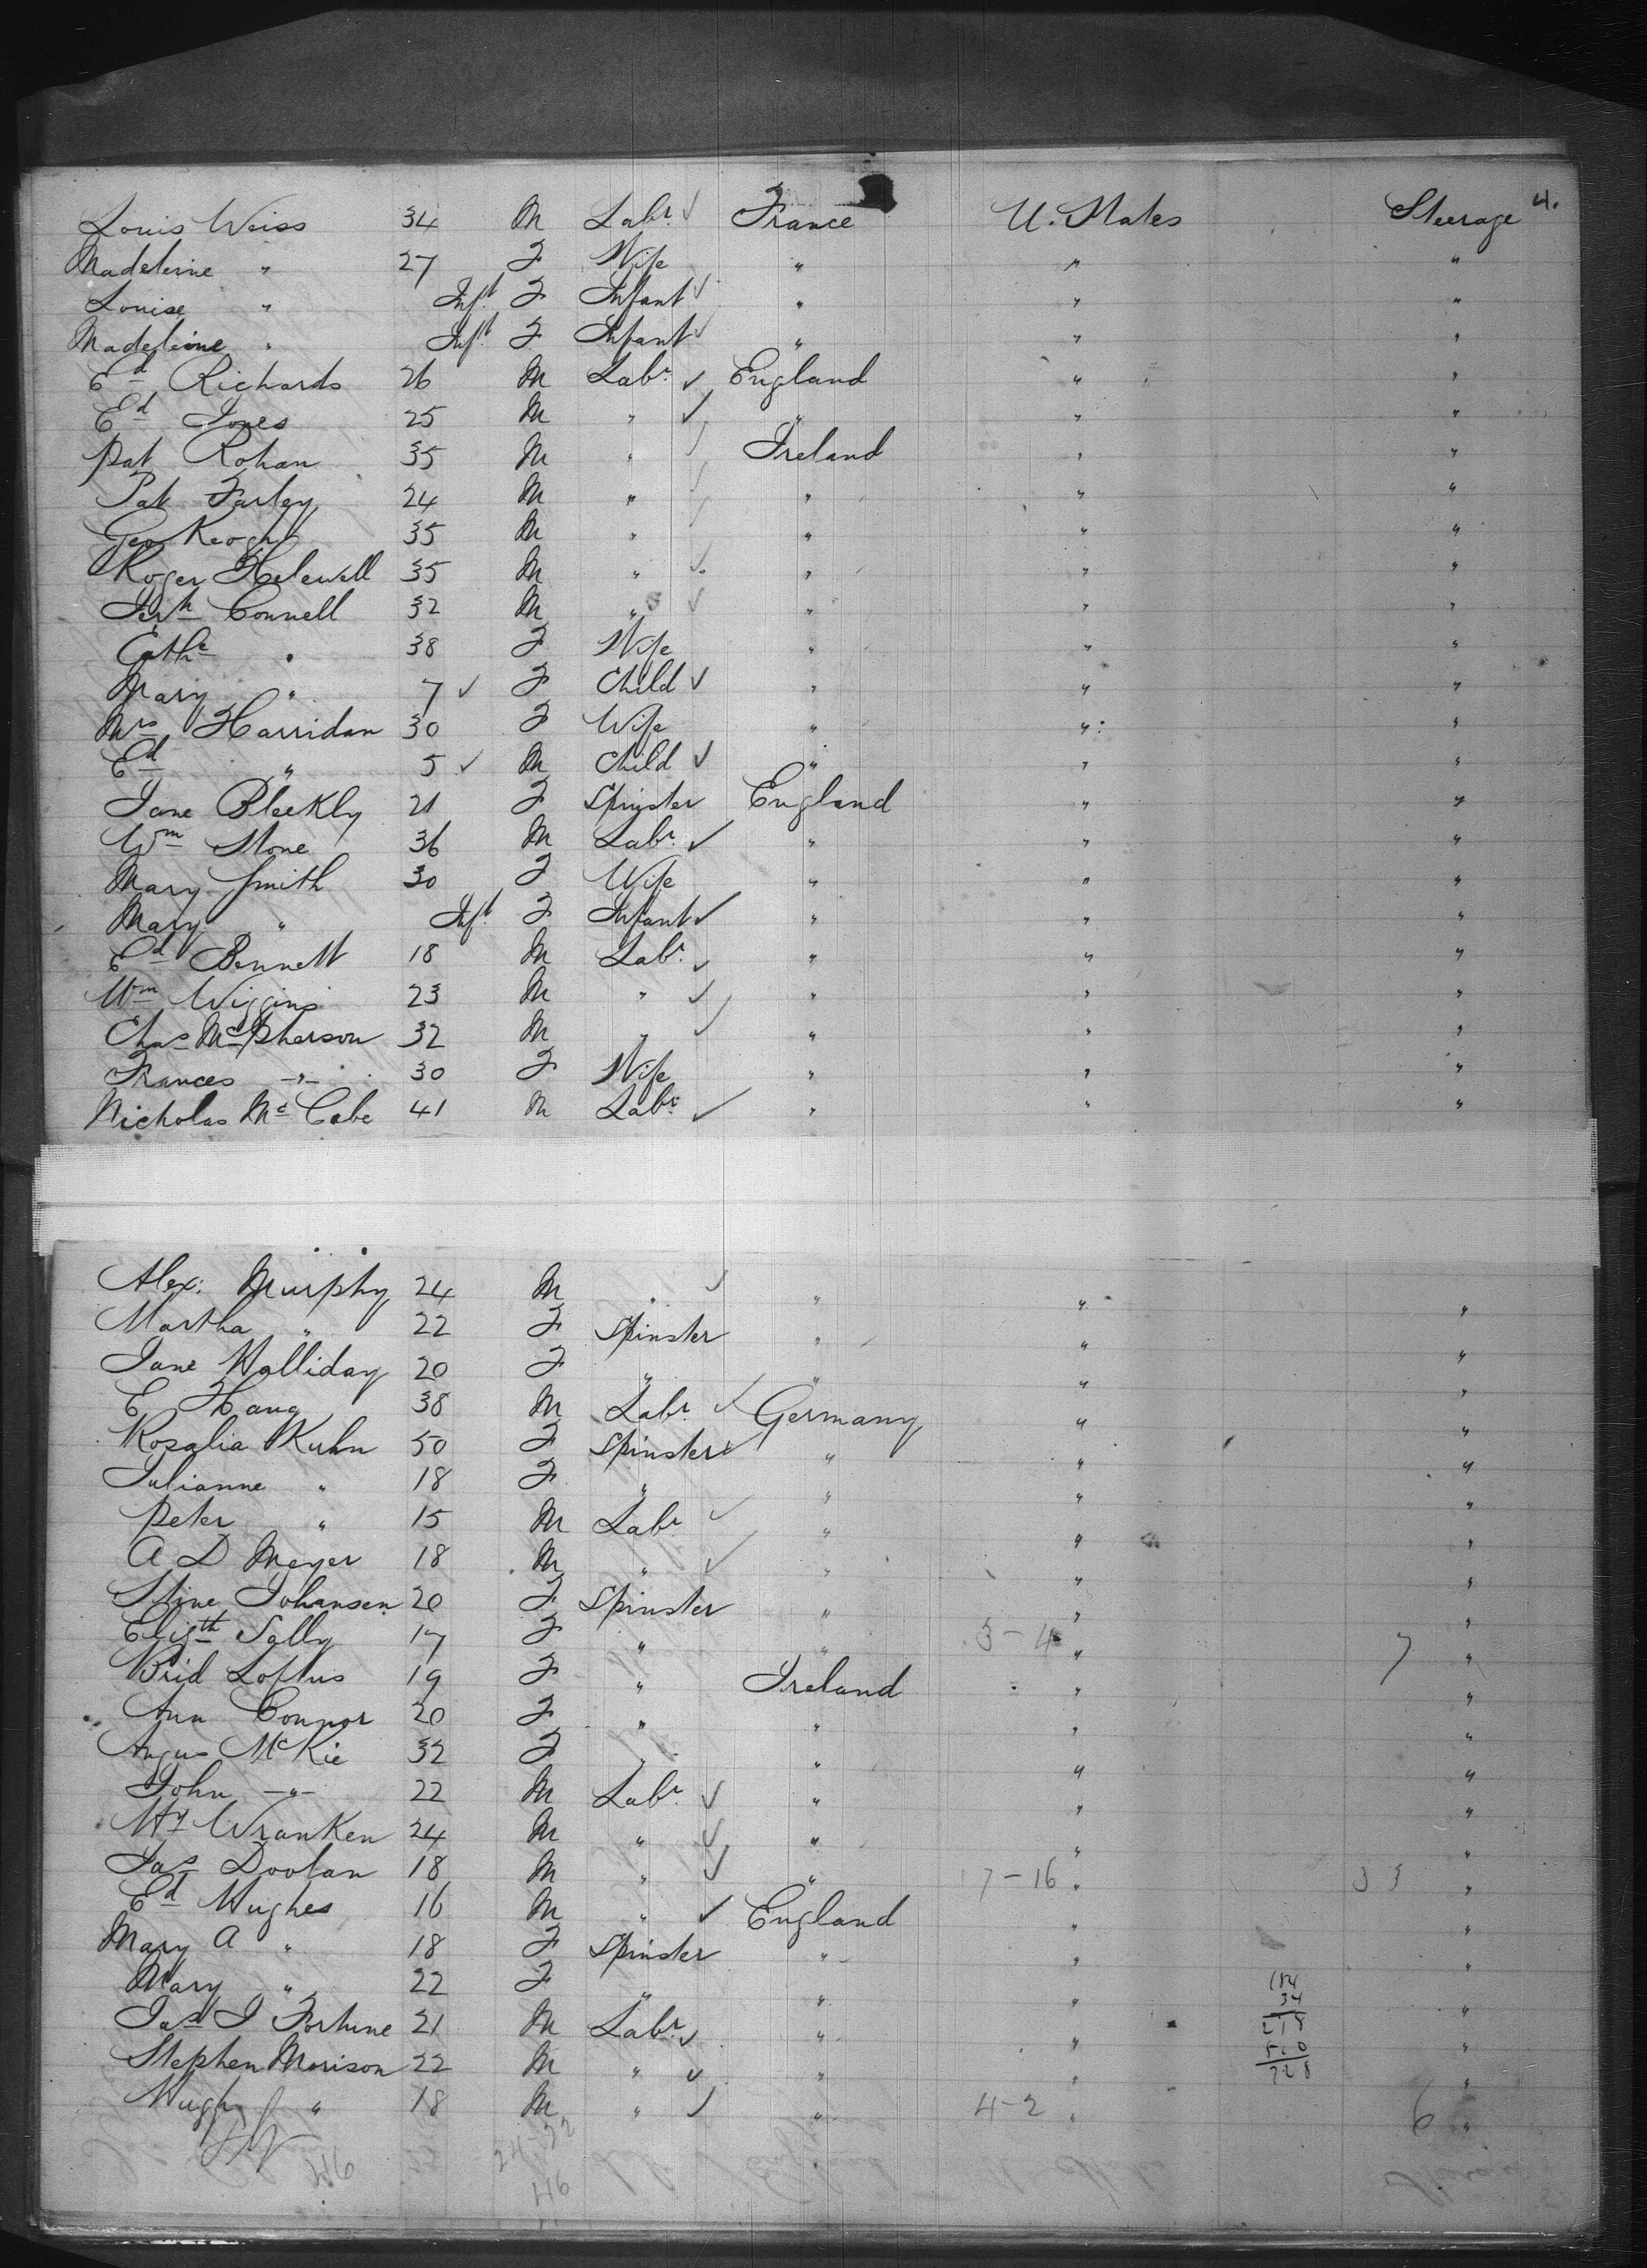 4.
Louis Weiss 34 M Labr ✓ France U. States Steerage
Madeleine " 27 F Wife " " "
Louise " Inft F Infant ✓ " " "
Madeleine " Inft F Infant ✓ " " "
Ed Richards 26 M Labr ✓ England " "
Ed Jones 25 M " ✓ " " "
Pat Rohan 35 M " ✓ Ireland " "
Pat Farley 24 M " ✓ " " "
Geo Keogh 35 M " ✓ " " "
Roger Helewell 35 M " ✓ " " "
Jerh Connell 32 M " ✓ " " "
Cathe " 38 F Wife " " "
Mary " 7 ✓ F Child ✓ " " "
Mrs Harridan 30 F Wife " " "
Ed " 5 ✓ M Child ✓ " " "
Jane Bleekly 21 F Spinster England " "
Wm Stone 36 M Labr ✓ " " "
Mary Smith 30 F Wife " " "
Mary " Inft F Infant ✓ " " "
Ed Bennett 18 M Labr ✓ " " "
Wm Wiggins 23 M " ✓ " " "
Chas McPherson 32 M " ✓ " " "
Frances -"- 30 F Wife " " "
Nicholas McCabe 41 M Labr ✓ " " "
Alex: Murphy 24 M " ✓ " " "
Martha " 22 F Spinster " " "
Jane Halliday 20 F " " " "
E Haug 38 M Labr ✓ Germany " "
Rosalia Kuhn 50 F Spinster ✓ " " "
Julianne " 18 F " " " "
Peter " 15 M Labr ✓ " " "
A D Meyer 18 M " ✓ " " "
Stine Johansen 20 F Spinster " " "
Elizth Sally 17 F " " 3-4 " 7 "
Brid Loftus 19 F " Ireland " "
Ann Connor 20 F " " " "
Angus McKie 32 F " " " "
John -"- 22 M Labr ✓ " " "
Hy Wranken 24 M " ✓ " " "
Jas Doolan 18 M " ✓ " 17-16 " 33 "
Ed Hughes 16 M " ✓ England " "
Mary A " 18 F Spinster " " "
Mary " 22 F " " " "
Jas J Fortune 21 M Labr ✓ " " "
Stephen Morison 22 M " ✓ " " "
Hugh " 18 M " ✓ " 4-2 " 6 "
184
34
218
510
728
24-22
46
46